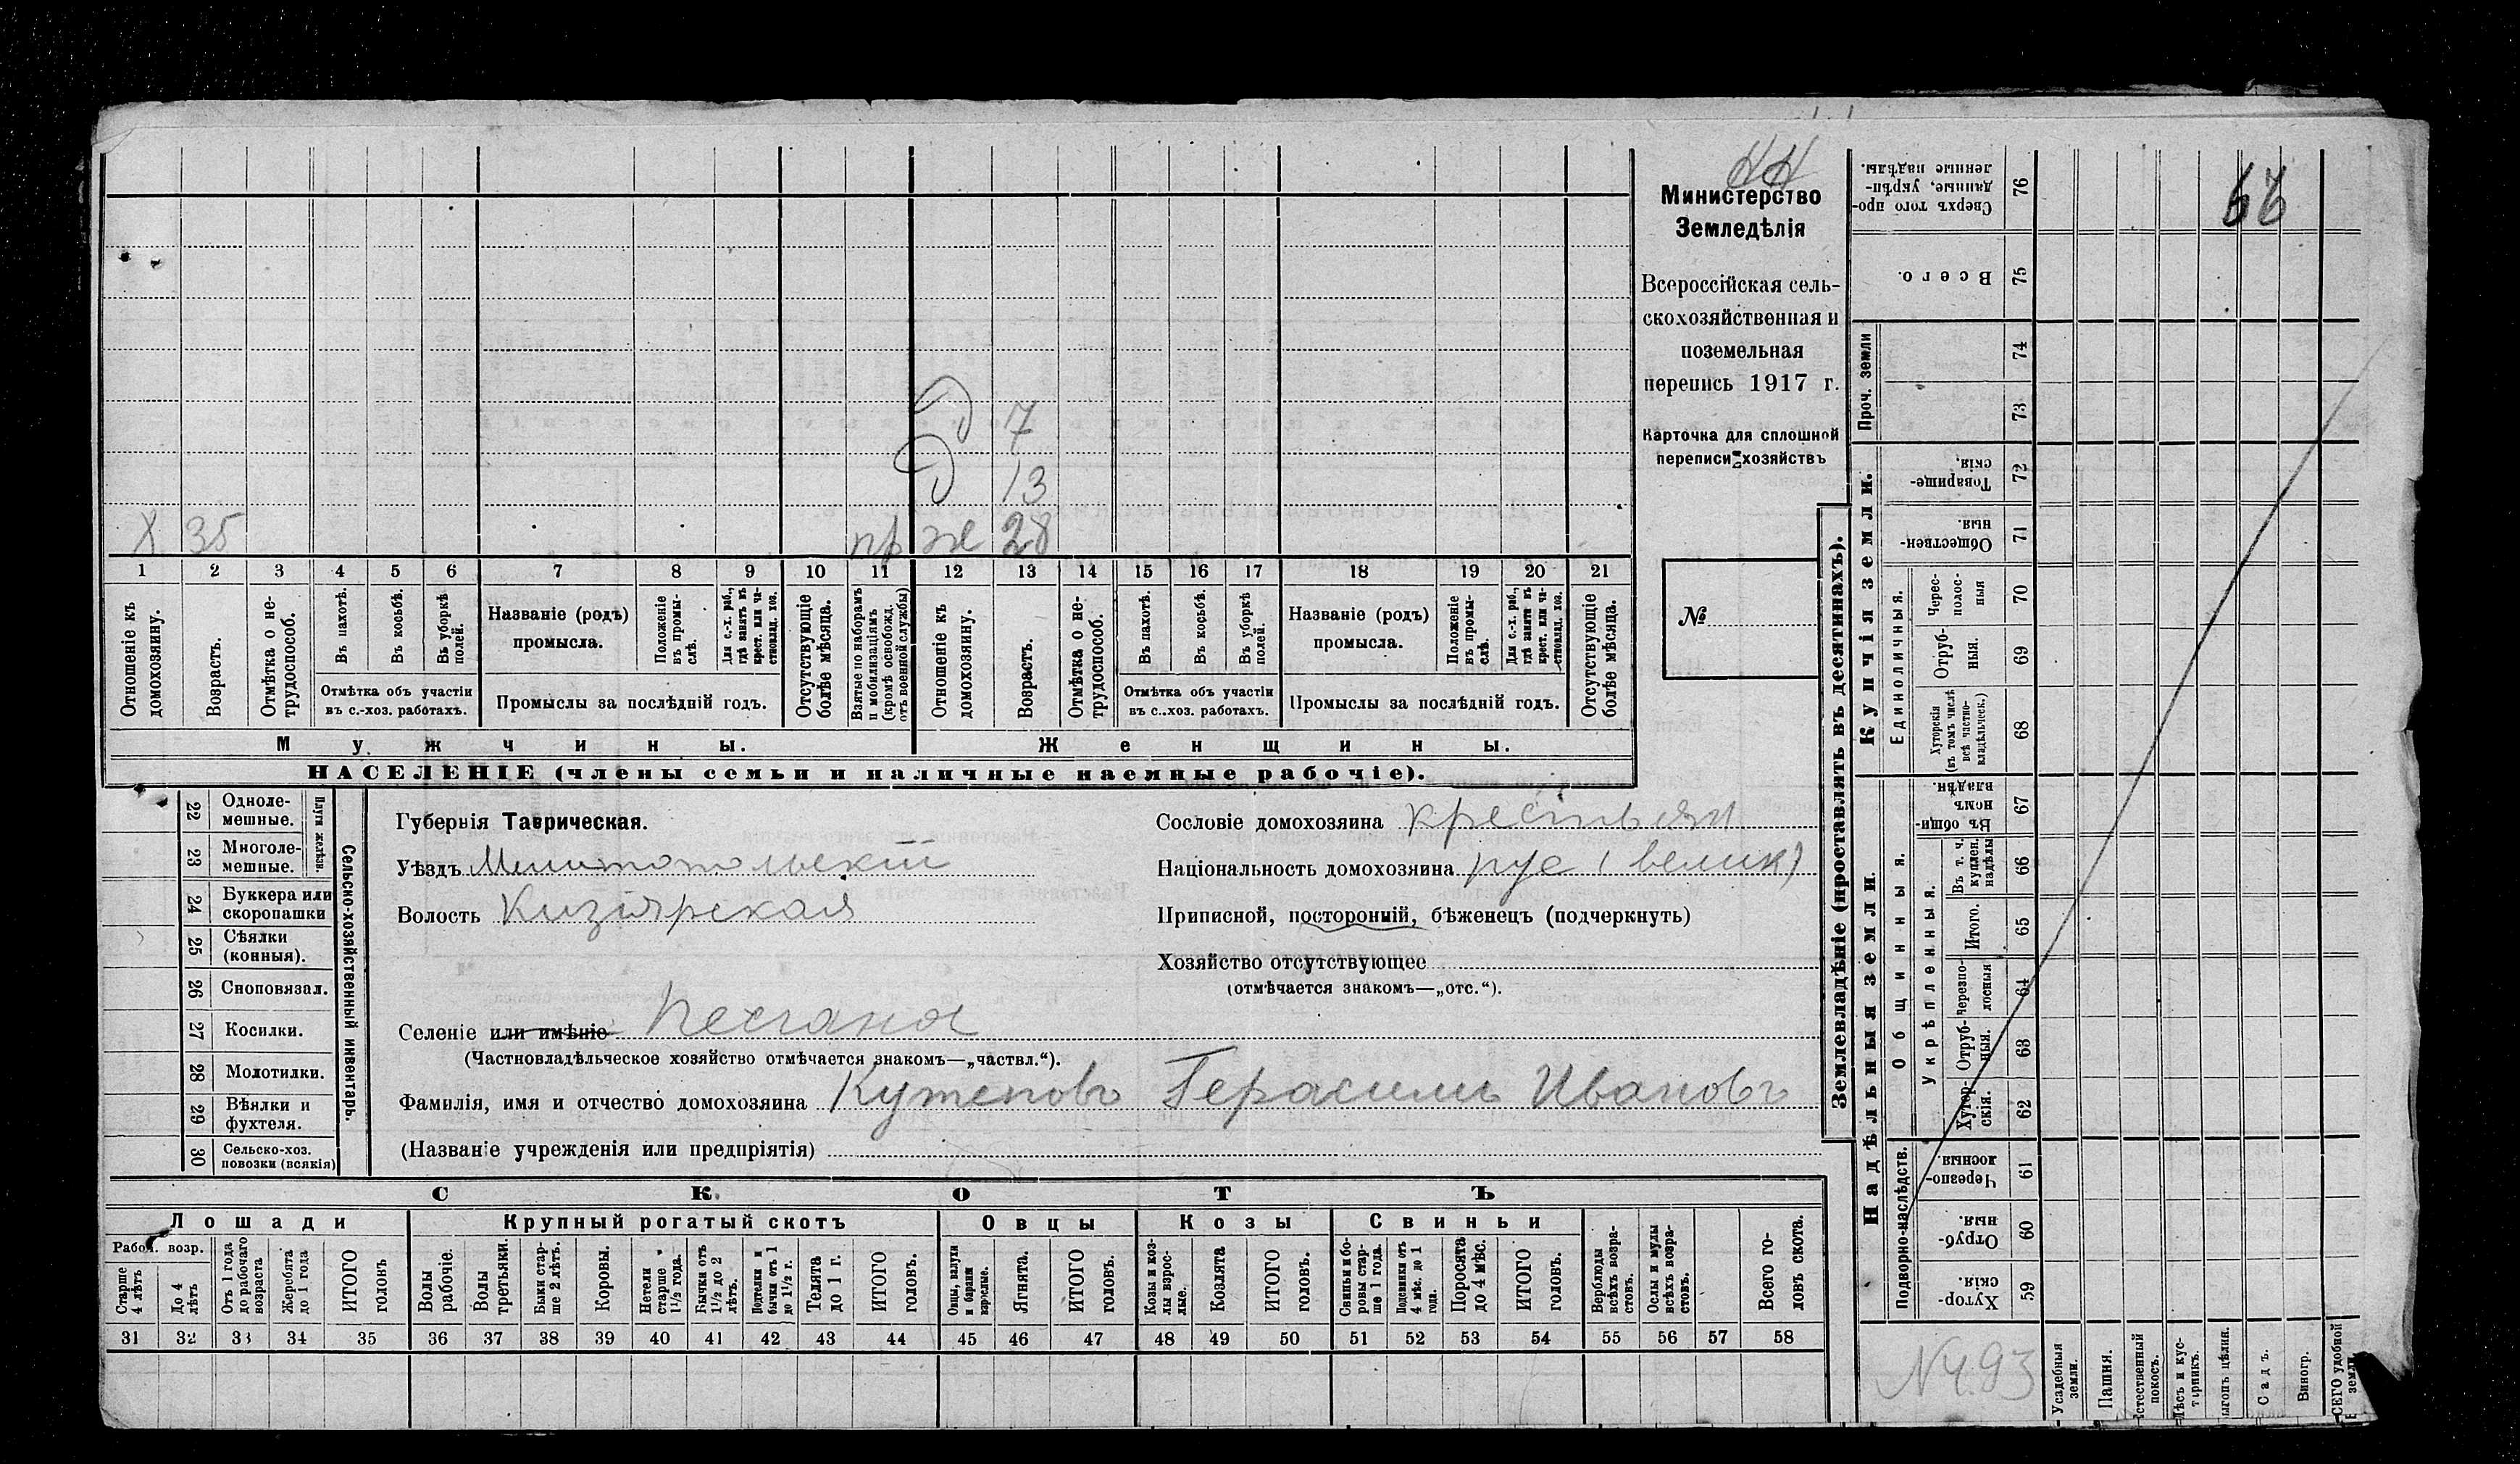 НН
Министерство
Земледѣлія
Всероссійская сель-
скохозяйственная и
поземельная
перепись 1917 г.
Карточка для сплошной
переписи хозяйствъ
№
66
Д 7
Д 13
Х 35 пр же 28
1 2 3 4 5 6 7 8 9 10 11 12 13 14 15 16 17 18 19 20 21
Отношеніе къ домохозяину.
Возрастъ.
Отмѣтка о не-трудоспособ.
Въ пахотѣ.
Въ косьбѣ.
Въ уборкѣ полей.
Отмѣтка объ участіи
въ с.-хоз. работахъ.
Названіе (родъ)
промысла.
Положеніе въ промы-слѣ.
Для с.-х. раб., гдѣ занятъ въ крест. или ча-стновлад. хоз.
Промыслы за послѣдній годъ.
Отсутствующіе болѣе мѣсяца.
Взятые по наборамъ и мобилизаціямъ (кромѣ освобожд. отъ военной службы)
Отношеніе къ домохозяину.
Возрастъ.
Отмѣтка о не-трудоспособ.
Въ пахотѣ.
Въ косьбѣ.
Въ уборкѣ полей.
Отмѣтка объ участіи
въ с..хоз. работахъ.
Названіе (родъ)
промысла.
Положеніе въ промы-слѣ.
Для с.-х. раб., гдѣ занятъ въ крест. или ча-стновлад. хоз.
Промыслы за послѣдній годъ.
Отсутствующіе болѣе мѣсяца.
Мужчины.
Женщины.
НАСЕЛЕНІЕ (члены семьи и наличные наемные рабочіе).
22 Одноле-мешные.
23 Многоле-мешные.
Плуги желѣзн.
24 Буккера или скоропашки
25 Сѣялки (конныя).
26 Сноповязал.
27 Косилки.
28 Молотилки.
29 Вѣялки и фухтеля.
30 Сельско-хоз. повозки (всякія)
Сельско-хозяйственный инвентарь.
Губернія Таврическая.
Уѣздъ Мелитопольскій
Волость Кизіярская
Селеніе или имѣніе Песчаная
(Частновладѣльческое хозяйство отмѣчается знакомъ—„частвл.“).
Фамилія, имя и отчество домохозяина Кутеповъ Герасимъ Ивановъ
(Названіе учрежденія или предпріятія)
Сословіе домохозяина крестьян
Національность домохозяина рус (велик)
Приписной, посторонній, бѣженецъ (подчеркнуть)
Хозяйство отсутствующее
(отмѣчается знакомъ—„отс.“).
СКОТЪ
Лошади
Крупный рогатый скотъ
Овцы
Козы
Свиньи
Рабоч. возр.
Старше 4 лѣтъ
До 4 лѣтъ
Отъ 1 года до рабочаго возраста
Жеребята до 1 года
ИТОГО головъ
Волы рабочіе.
Волы третьяки.
Быки стар-ше 2 лѣтъ.
Коровы.
Нетели старше 1½ года.
Бычки отъ 1½ до 2 лѣтъ.
Подтелки и бычки отъ 1 до 1½ г.
Телята до 1 г.
ИТОГО головъ.
Овцы, валухи и бараны взрослые.
Ягнята.
ИТОГО головъ.
Козы и коз-лы взрос-лые.
Козлята
ИТОГО головъ.
Свиньи и бо-ровы стар-ше 1 года.
Подсвинки отъ 4 мѣс. до 1 года.
Поросята до 4 мѣс.
ИТОГО головъ.
Верблюды всѣхъ возра-стовъ.
Ослы и мулы всѣхъ возра-стовъ.
Всего го-ловъ скота.
31 32 33 34 35 36 37 38 39 40 41 42 43 44 45 46 47 48 49 50 51 52 53 54 55 56 57 58
Землевладѣніе (проставлять въ десятинахъ).
Надѣльныя земли.
Купчія земли.
Проч. земли
Подворно-наслѣдств.
Общинныя.
Укрѣпленныя.
Единоличныя.
Сверхъ того про-данные, укрѣп-ленные надѣлы. 76
Всего. 75
74
73
Товарище-скія. 72
Обществен-ныя. 71
Черес-полос-ныя 70
Отруб-ныя. 69
Хуторскія (въ томъ числѣ всѣ частно-владѣльческ.) 68
Въ общин-номъ владѣн. 67
Въ т. ч. куплен. надѣлы 66
Итого. 65
Черезпо-лосныя 64
Отруб-ныя. 63
Хутор-скія. 62
Черезпо-лосныя. 61
Отруб-ныя. 60
Хутор-скія. 59
№ 493
Усадебныя земли.
Пашня.
Естественный покосъ.
Лѣсъ и кус-тарникъ.
Выгонъ цѣлин.
Садъ.
Виногр.
ВСЕГО удобной земли.